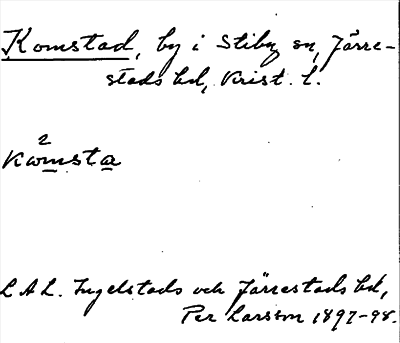 Komstad, by i Stiby sn, Järre-
stads hd, Krist. l.
2
kωmsta
L A L. Ingelstads och Järrestads hd,
Per Larsson 1897-98.